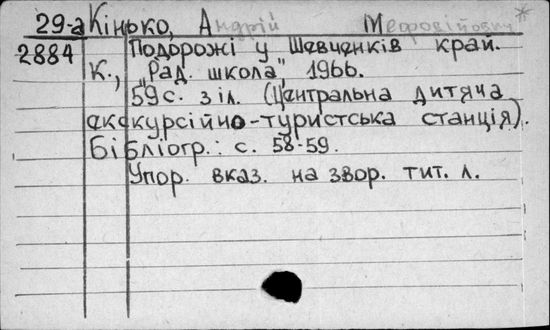 29-а Кінько, Андрій Мефовійович*
2884 Подорожі у Шевченків край.
К., „Рад. школа", 1966.
59 с. з іл. (Центральна дитяча
екскурсійно-туристська станція).
Бібліогр.: с. 58-59.
Упор. вказ. на звор. тит. л.